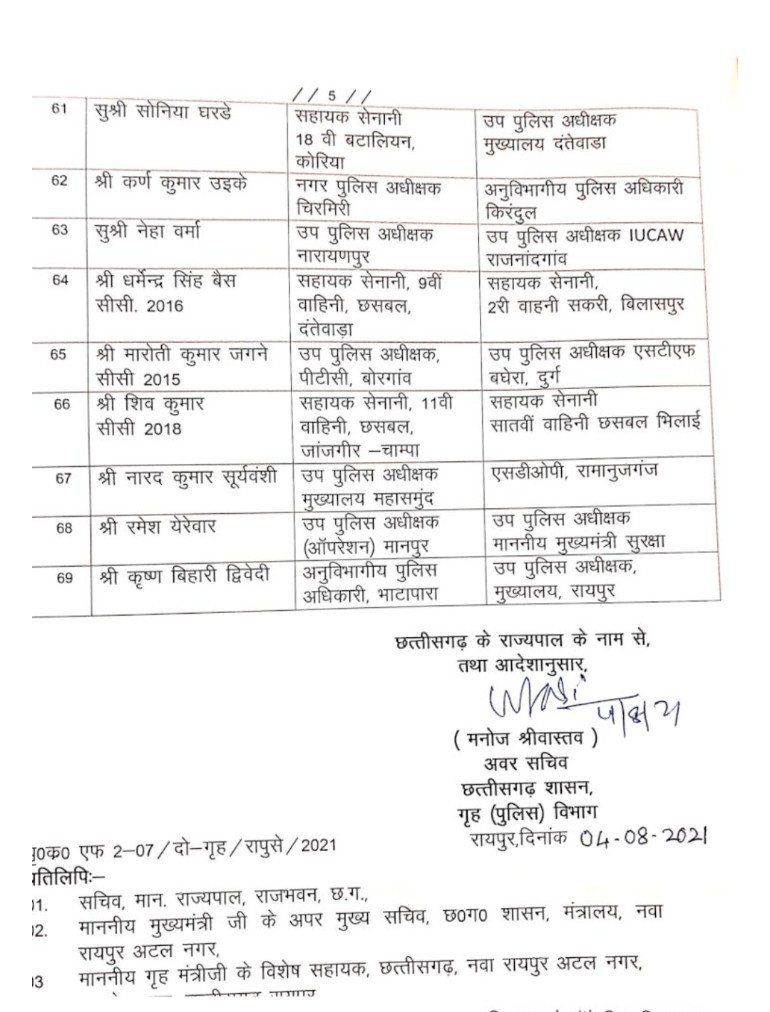 // 5 //
61 सुश्री सोनिया घरडे सहायक सेनानी उप पुलिस अधीक्षक
18 वी बटालियन, मुख्यालय दंतेवाडा
कोरिया
62 श्री कर्ण कुमार उइके नगर पुलिस अधीक्षक अनुविभागीय पुलिस अधिकारी
चिरमिरी किरंदुल
63 सुश्री नेहा वर्मा उप पुलिस अधीक्षक उप पुलिस अधीक्षक IUCAW
नारायणपुर राजनांदगांव
64 श्री धर्मेन्द्र सिंह बैस सहायक सेनानी, 9वीं सहायक सेनानी,
सीसी. 2016 वाहिनी, छसबल, 2री वाहनी सकरी, बिलासपुर
दंतेवाड़ा
65 श्री मारोती कुमार जगने उप पुलिस अधीक्षक, उप पुलिस अधीक्षक एसटीएफ
सीसी 2015 पीटीसी, बोरगांव बघेरा, दुर्ग
66 श्री शिव कुमार सहायक सेनानी, 11वी सहायक सेनानी
सीसी 2018 वाहिनी, छसबल, सातवीं वाहिनी छसबल भिलाई
जांजगीर –चाम्पा
67 श्री नारद कुमार सूर्यवंशी उप पुलिस अधीक्षक एसडीओपी, रामानुजगंज
मुख्यालय महासमुंद
68 श्री रमेश येरेवार उप पुलिस अधीक्षक उप पुलिस अधीक्षक
(ऑपरेशन) मानपुर माननीय मुख्यमंत्री सुरक्षा
69 श्री कृष्ण बिहारी द्विवेदी अनुविभागीय पुलिस उप पुलिस अधीक्षक,
अधिकारी, भाटापारा मुख्यालय, रायपुर
छत्तीसगढ़ के राज्यपाल के नाम से,
तथा आदेशानुसार,
( मनोज श्रीवास्तव )
अवर सचिव
छत्तीसगढ़ शासन,
गृह (पुलिस) विभाग
रायपुर,दिनांक 04-08-2021
पृ0क0 एफ 2–07/दो–गृह/रापुसे/2021
प्रतिलिपिः–
01. सचिव, मान. राज्यपाल, राजभवन, छ.ग.,
02. माननीय मुख्यमंत्री जी के अपर मुख्य सचिव, छ0ग0 शासन, मंत्रालय, नवा
रायपुर अटल नगर,
03 माननीय गृह मंत्रीजी के विशेष सहायक, छत्तीसगढ़, नवा रायपुर अटल नगर,